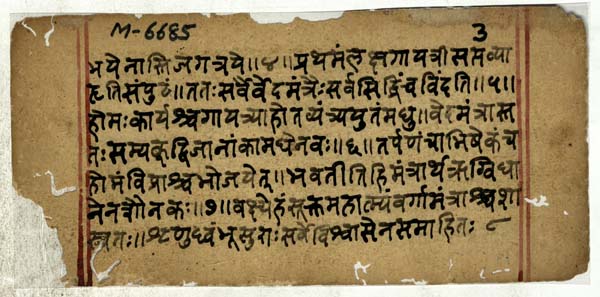 M-6685 3
भयेनास्तिजगत्रये॥४॥प्रथमंलक्षगायत्रीसप्तव्या
हृतिसंपुटां॥ततःसर्वैर्वेदमंत्रैःसर्वसिद्धिंचविंदति॥५॥
होमःकार्यश्चगायत्र्याहोतव्यंत्र्ययुतंमधु॥वेदमंत्रास्त
तःसम्यक्द्विजानांकामधेनवः॥६॥तर्पणंचाभिषेकंच
होमंविप्राश्चभोजयेत्॥भवतीतिहिमंत्रार्थऋग्विधा
नेनशौनकः॥७॥वक्ष्येहंसूक्तमहात्म्यंवर्गामंत्राश्चशा
स्वतः॥श्रृणुध्वंभूसुराःसर्वेविश्वासेनसमाहितः ८